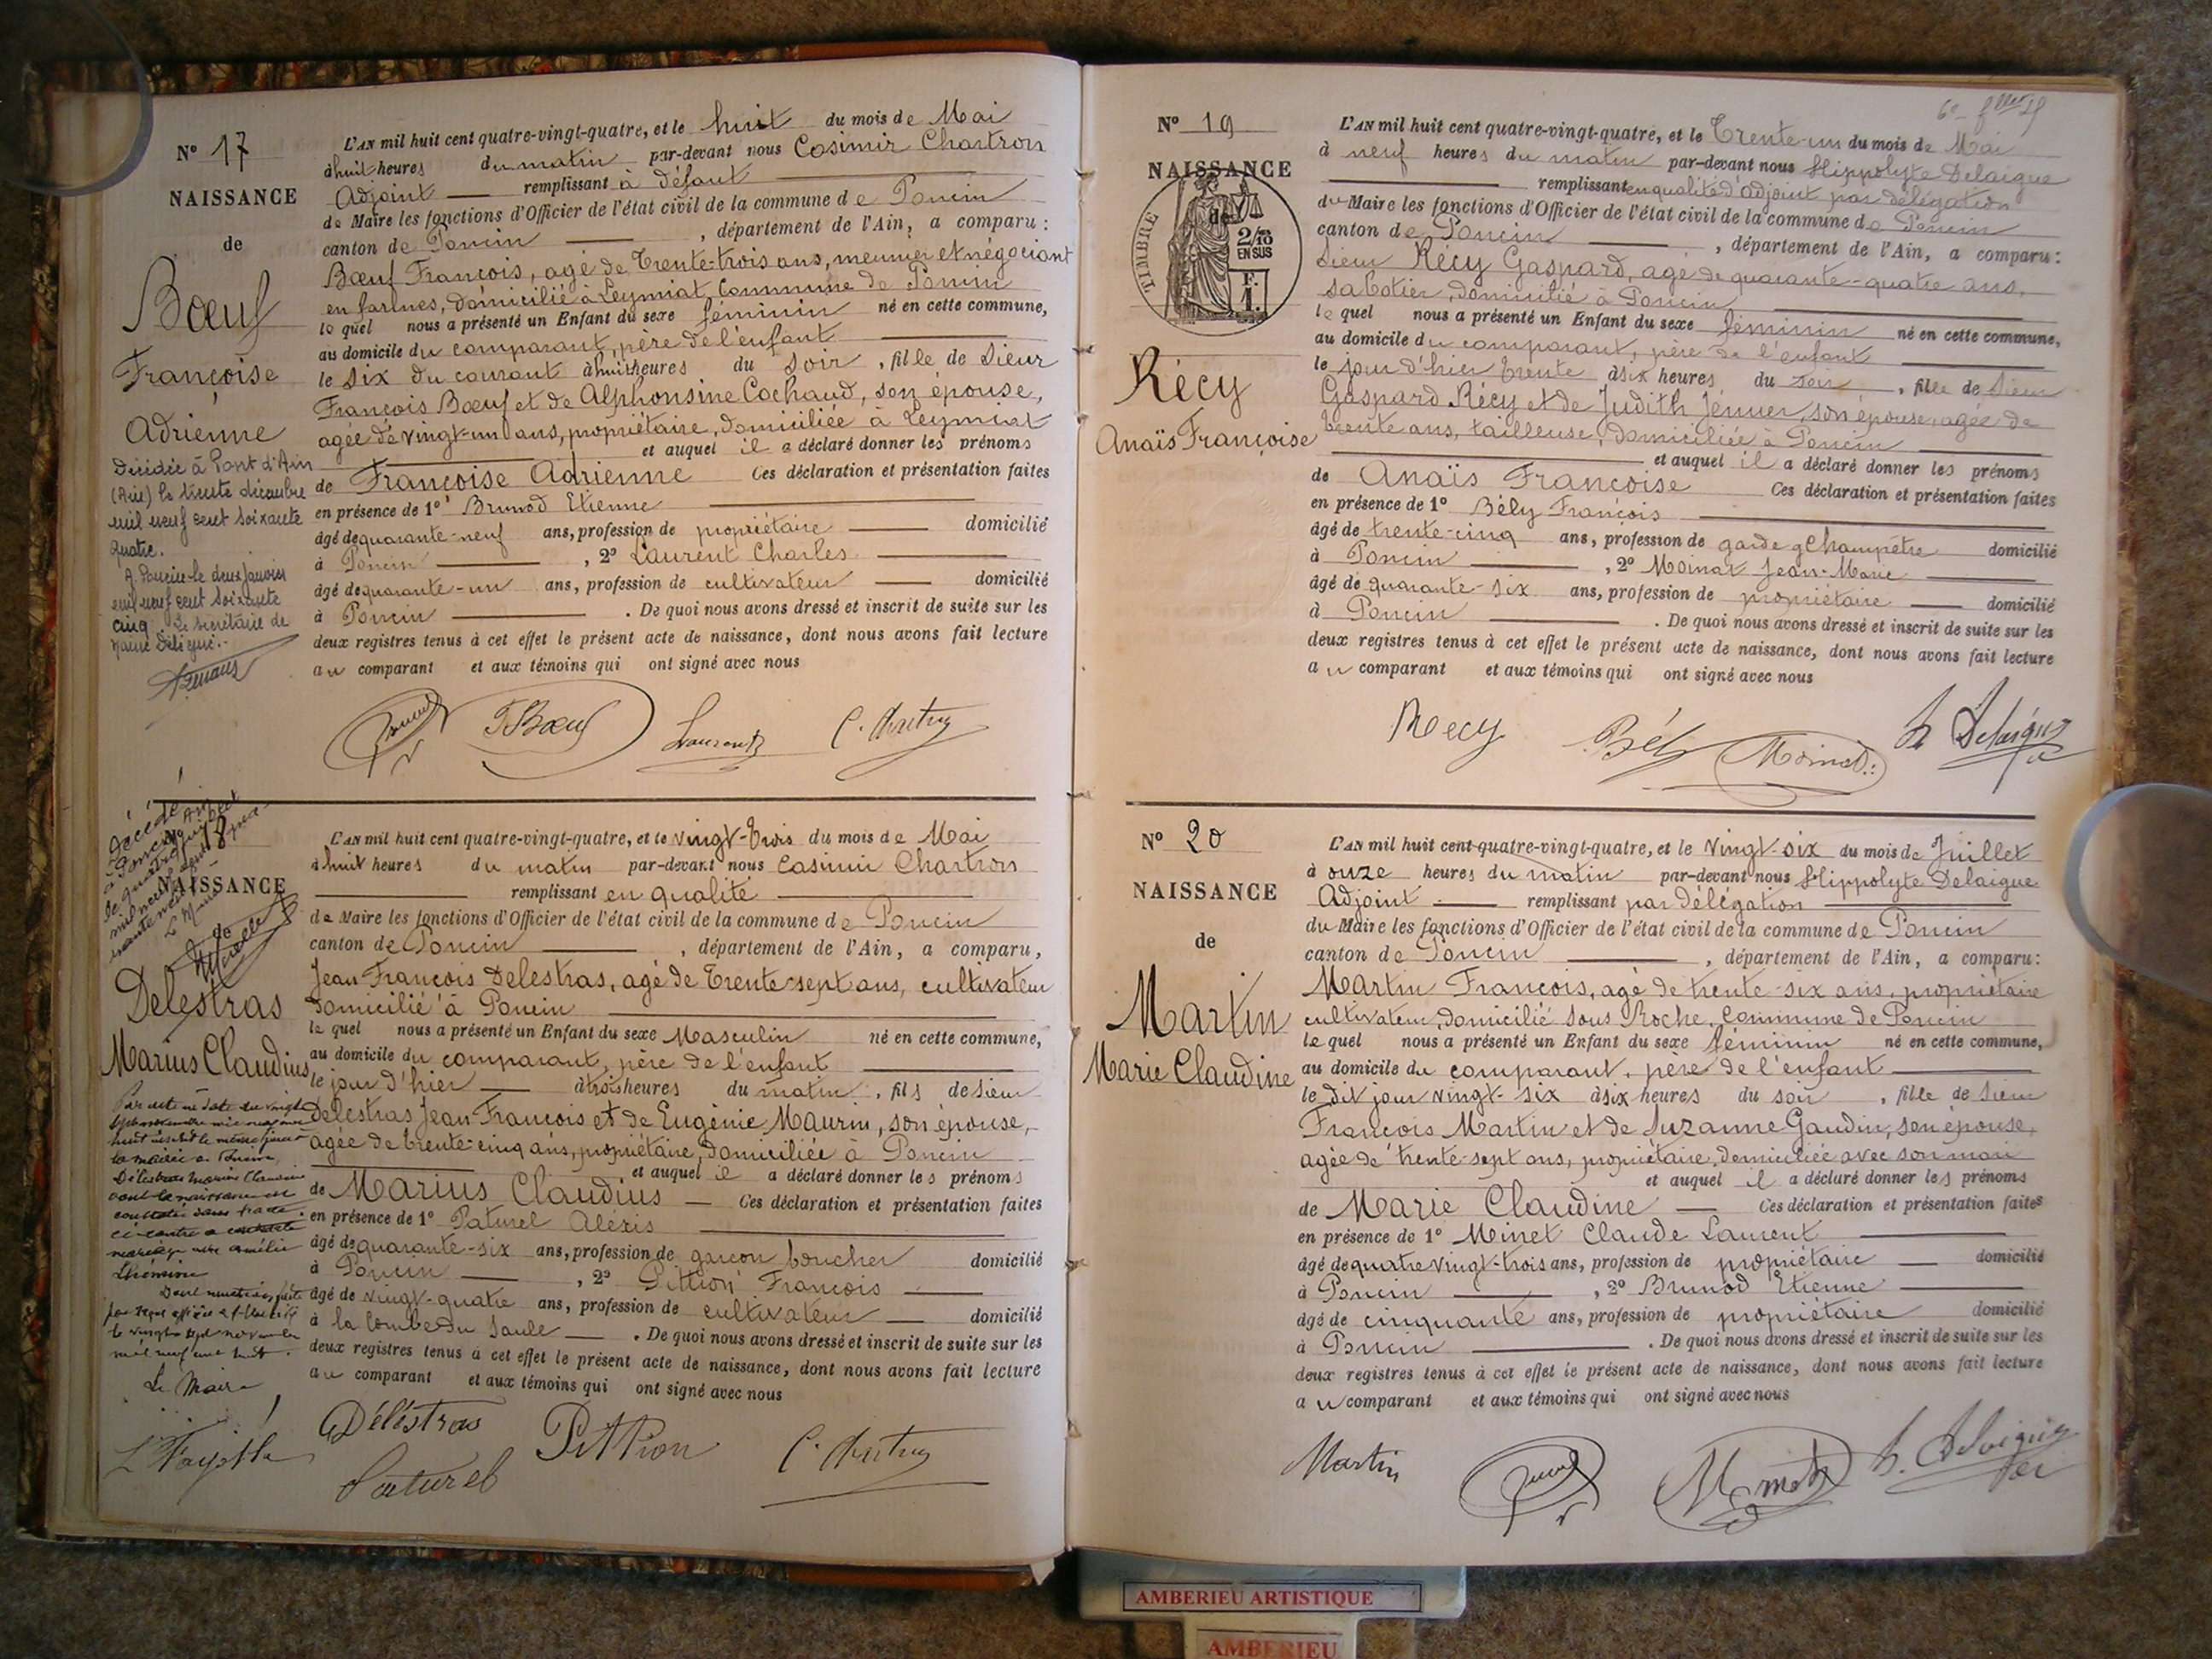 N° 17
NAISSANCE
de
Bœuf
Françoise
Adrienne
Décédée à Pont d'Ain
(Ain) le trente décembre
mil neuf cent soixante
quatre.
A Poncin le deux janvier
mil neuf cent soixante
cinq. Le secrétaire de
Mairie Délégué.
L'AN mil huit cent quatre-vingt-quatre, et le huit du mois de Mai
à huit heures du matin par-devant nous Casimir Chartron
Adjoint remplissant à défaut
de Maire les fonctions d'Officier de l'état civil de la commune de Poncin
canton de Poncin , département de l'Ain, a comparu :
Bœuf François, agé de Trente-trois ans, meunier et négociant
en farines, domicilié à Leymiat Commune de Poncin
le quel nous a présenté un Enfant du sexe féminin né en cette commune,
au domicile du comparant, père de l'enfant
le six du courant à huit heures du soir , fille de Sieur
François Bœuf et de Alphonsine Cochaud, son épouse,
agée de vingt-un ans, propriétaire, domiciliée à Leymiat
et auquel il a déclaré donner les prénoms
de Françoise Adrienne Ces déclaration et présentation faites
en présence de 1° Brunod Etienne
âgé de quarante-neuf ans, profession de propriétaire domicilié
à Poncin , 2° Laurent Charles
âgé de quarante-un ans, profession de cultivateur domicilié
à Poncin . De quoi nous avons dressé et inscrit de suite sur les
deux registres tenus à cet effet le présent acte de naissance, dont nous avons fait lecture
au comparant et aux témoins qui ont signé avec nous
Brunod F Bœuf Laurent C. Chartron
Décédé
à Poncin (Ain)
18
NAISSANCE
de
Delestras
Marius Claudius
Par acte en date du vingt
sept novembre mil neuf cent
huit inscrit le même jour à
la mairie de Poncin,
Délestras Marius Claudius
dont la naissance est
constatée dans l'acte
ci-contre a contracté
mariage avec Amélie
le vingt sept novembre
mil neuf cent huit.
Le Maire
L'AN mil huit cent quatre-vingt-quatre, et le vingt-trois du mois de Mai
à huit heures du matin par-devant nous Casimir Chartron
remplissant en qualité
de Maire les fonctions d'Officier de l'état civil de la commune de Poncin
canton de Poncin , département de l'Ain, a comparu,
Jean François Delestras, agé de Trente-sept ans, cultivateur
domicilié à Poncin
le quel nous a présenté un Enfant du sexe Masculin né en cette commune,
au domicile du comparant, père de l'enfant
le jour d'hier à trois heures du matin , fils de sieur
Delestras Jean François et de Eugénie Maurin, son épouse,
agée de trente-cinq ans, propriétaire, domiciliée à Poncin
et auquel il a déclaré donner les prénoms
de Marius Claudius Ces déclaration et présentation faites
en présence de 1° Paturel Alexis
âgé de quarante-six ans, profession de garçon boucher domicilié
à Poncin , 2° Pittion François
âgé de vingt-quatre ans, profession de cultivateur domicilié
à la Combe du Saule . De quoi nous avons dressé et inscrit de suite sur les
deux registres tenus à cet effet le présent acte de naissance, dont nous avons fait lecture
au comparant et aux témoins qui ont signé avec nous
Délestras Pittion C. Chartron
Paturel
N° 19
NAISSANCE
de
TIMBRE
2/10
EN SUS
F.
1.
Récy
Anaïs Françoise
L'AN mil huit cent quatre-vingt-quatre, et le Trente-un du mois de Mai
à neuf heures du matin par-devant nous Hippolyte Delaigue
remplissant en qualité d'adjoint par délégation
du Maire les fonctions d'Officier de l'état civil de la commune de Poncin
canton de Poncin , département de l'Ain, a comparu :
Sieur Récy Gaspard, agé de quarante-quatre ans,
sabotier, domicilié à Poncin
le quel nous a présenté un Enfant du sexe féminin né en cette commune,
au domicile du comparant, père de l'enfant
le jour d'hier trente à six heures du soir , fille de Sieur
Gaspard Récy et de Judith Jenner son épouse, agée de
trente ans, tailleuse, domiciliée à Poncin
et auquel il a déclaré donner les prénoms
de Anaïs Françoise Ces déclaration et présentation faites
en présence de 1° Bély François
âgé de trente-cinq ans, profession de garde Champêtre domicilié
à Poncin , 2° Moinat Jean-Marie
âgé de quarante-six ans, profession de propriétaire domicilié
à Poncin . De quoi nous avons dressé et inscrit de suite sur les
deux registres tenus à cet effet le présent acte de naissance, dont nous avons fait lecture
au comparant et aux témoins qui ont signé avec nous
Recy Bély Moinat H Delaigue
N° 20
NAISSANCE
de
Martin
Marie Claudine
L'AN mil huit cent quatre-vingt-quatre, et le Vingt-six du mois de Juillet
à onze heures du matin par-devant nous Hippolyte Delaigue
Adjoint remplissant par délégation
du Maire les fonctions d'Officier de l'état civil de la commune de Poncin
canton de Poncin , département de l'Ain, a comparu :
Martin François, agé de trente-six ans, propriétaire
cultivateur, domicilié sous Roche, Commune de Poncin
le quel nous a présenté un Enfant du sexe féminin né en cette commune,
au domicile du comparant, père de l'enfant
le dit jour vingt-six à six heures du soir , fille de Sieur
François Martin et de Suzanne Gaudin, son épouse,
agée de trente-sept ans, propriétaire, domiciliée avec son mari
et auquel il a déclaré donner les prénoms
de Marie Claudine Ces déclaration et présentation faites
en présence de 1° Minet Claude Laurent
âgé de quatre vingt-trois ans, profession de propriétaire domicilié
à Poncin , 2° Brunod Etienne
âgé de cinquante ans, profession de propriétaire domicilié
à Poncin . De quoi nous avons dressé et inscrit de suite sur les
deux registres tenus à cet effet le présent acte de naissance, dont nous avons fait lecture
au comparant et aux témoins qui ont signé avec nous
Martin Brunod Minet h. Delaigue
AMBERIEU ARTISTIQUE
AMBERIEU